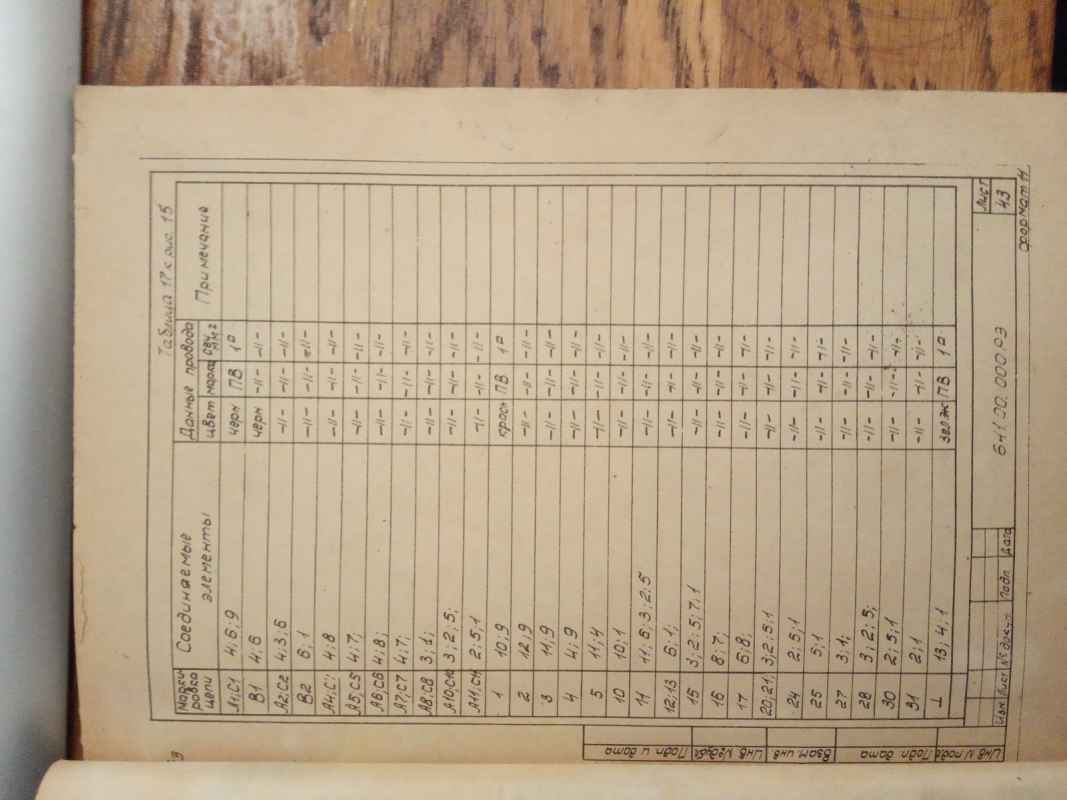 Таблица 17 к рис. 15
Марки- ровка цепи Соединяемые элементы Данные провода Примечание
цвет марка сеч. мм2
А1; С1 4; 6; 9 черн ПВ 1,0
В1 4; 6 черн -//- -//-
А2; С2 4; 3, 6 -//- -//- -//-
В2 6; 1 -//- -//- -//-
А4, С4 4; 8 -//- -//- -//-
А5; С5 4; 7; -//- -//- -//-
А6, С6 4; 8; -//- -//- -//-
А7; С7 4; 7; -//- -//- -//-
А8; С8 3; 1; -//- -//- -//-
А10, С10 3; 2; 5; -//- -//- -//-
А11, С11 2; 5; 1 -//- -//- -//-
1 10; 9 красн ПВ 1,0
2 12; 9 -//- -//- -//-
3 11; 9 -//- -//- -//-
4 4; 9 -//- -//- -//-
5 11; 4 -//- -//- -//-
10 10; 1 -//- -//- -//-
11; 6; 3; 2; 5 -//- -//- -//-
12; 13 6; 1; -//- -//- -//-
15 3; 2; 5; 7; 1 -//- -//- -//-
16 8; 7; -//- -//- -//-
17 6; 8; -//- -//- -//-
20; 21; 3; 2; 5; 1 -//- -//- -//-
24 2; 5; 1 -//- -//- -//-
25 5; 1 -//- -//- -//-
27 3; 1; -//- -//- -//-
28 3; 2; 5; -//- -//- -//-
30 2; 5; 1 -//- -//- -//-
31 2; 1 -//- -//- -//-
⊥ 13; 4; 1 зел-ж ПВ 1,0
Изм. Лист № докум Подп. Дата
Лист
43
Формат 11
Подп и дата
Инв. № дубл.
Взам. инв.
Подп. дата
Инв № подл.